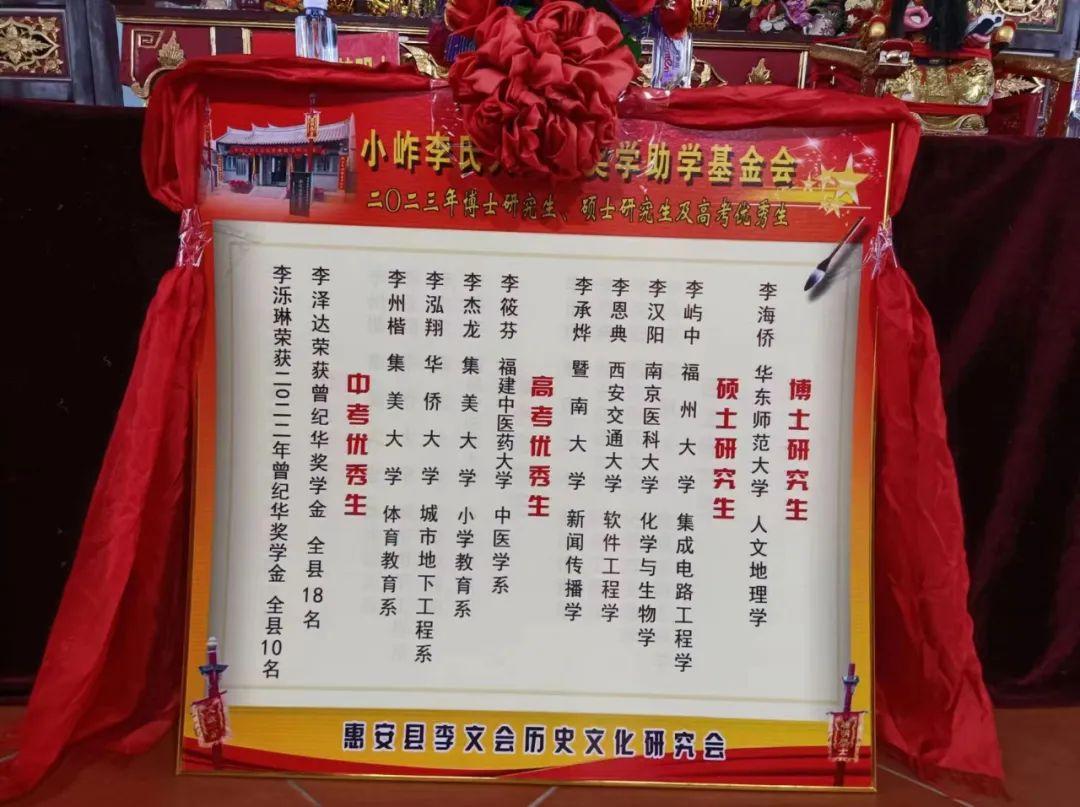 小岞李氏 奖学助学基金会
二〇二三年博士研究生、硕士研究生及高考优秀生
博士研究生
李海侨 华东师范大学 人文地理学
硕士研究生
李屿中 福州大学 集成电路工程学
李汉阳 南京医科大学 化学与生物学
李恩典 西安交通大学 软件工程学
李承烨 暨南大学 新闻传播学
高考优秀生
李筱芬 福建中医药大学 中医学系
李杰龙 集美大学 小学教育系
李泓翔 华侨大学 城市地下工程系
李州楷 集美大学 体育教育系
中考优秀生
李泽达荣获曾纪华奖学金 全县18名
李泺琳荣获二〇二二年曾纪华奖学金 全县10名
惠安县李文会历史文化研究会